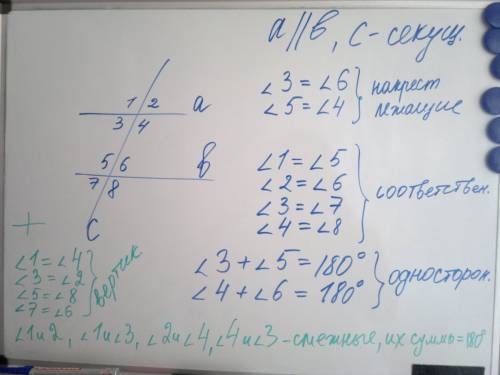 a//b, c-секущ.
1 2 a
3 4
5 6 b
7 8
c
∠3 = ∠6
∠5 = ∠4
} накрест лежащие
∠1 = ∠5
∠2 = ∠6
∠3 = ∠7
∠4 = ∠8
} соответствен.
∠3 + ∠5 = 180°
∠4 + ∠6 = 180°
} односторон.
+
∠1 = ∠4
∠3 = ∠2
∠5 = ∠8
∠7 = ∠6
} вертик
∠1 и 2, ∠1 и ∠3, ∠2 и ∠4, ∠4 и ∠3 - смежные, их сумма = 180°